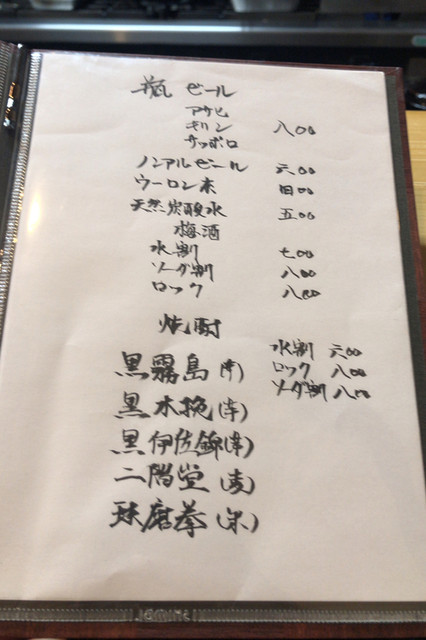 瓶ビール
アサヒ
キリン 八〇〇
サッポロ
ノンアルビール 六〇〇
ウーロン茶 四〇〇
天然炭酸水 五〇〇
梅酒
水割 七〇〇
ソーダ割 八〇〇
ロック 八〇〇
焼酎
水割 六〇〇
ロック 八〇〇
ソーダ割 八〇〇
黒霧島(芋)
黒木挽(芋)
黒伊佐錦(芋)
二階堂(麦)
球磨拳(米)